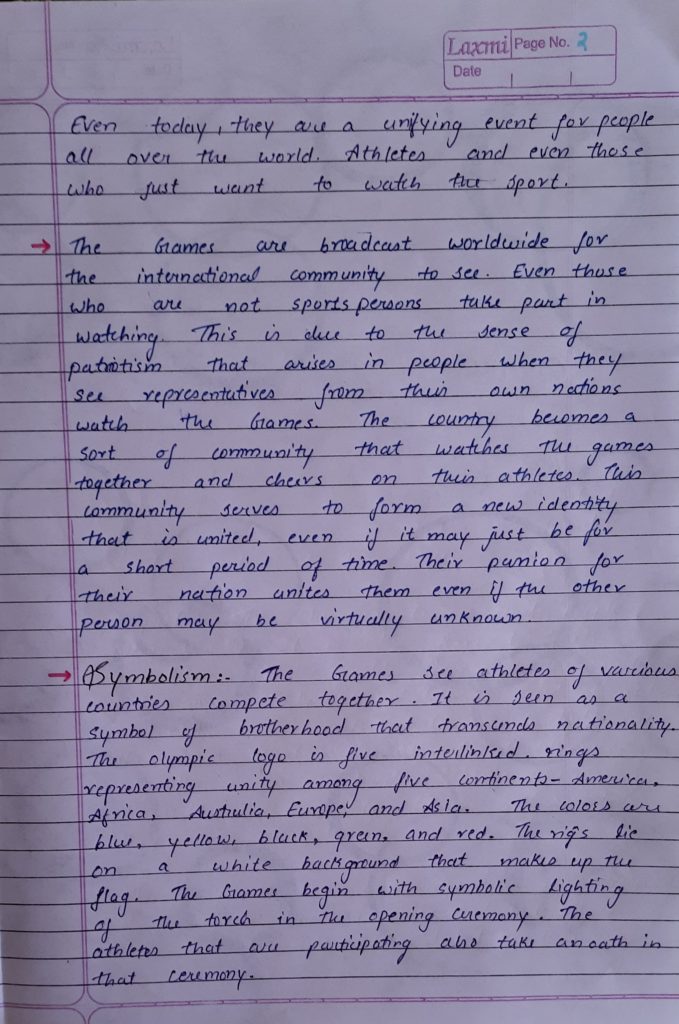 Laxmi Page No. 2
Date
Even today, they are a unifying event for people
all over the world. Athletes and even those
who just want to watch the sport.
→ The Games are broadcast worldwide for
the international community to see. Even those
who are not sports persons take part in
watching. This is due to the sense of
patriotism that arises in people when they
see representatives from their own nations
watch the Games. The country becomes a
sort of community that watches the games
together and cheers on their athletes. This
community serves to form a new identity
that is united, even if it may just be for
a short period of time. Their passion for
their nation unites them even if the other
person may be virtually unknown.
→ Symbolism:- The Games see athletes of various
countries compete together. It is seen as a
symbol of brotherhood that transcends nationality.
The olympic logo is five interlinked rings
representing unity among five continents- America,
Africa, Australia, Europe, and Asia. The colors are
blue, yellow, black, green, and red. The rigs lie
on a white background that makes up the
flag. The Games begin with symbolic lighting
of the torch in the opening ceremony. The
athletes that are participating also take an oath in
that ceremony.